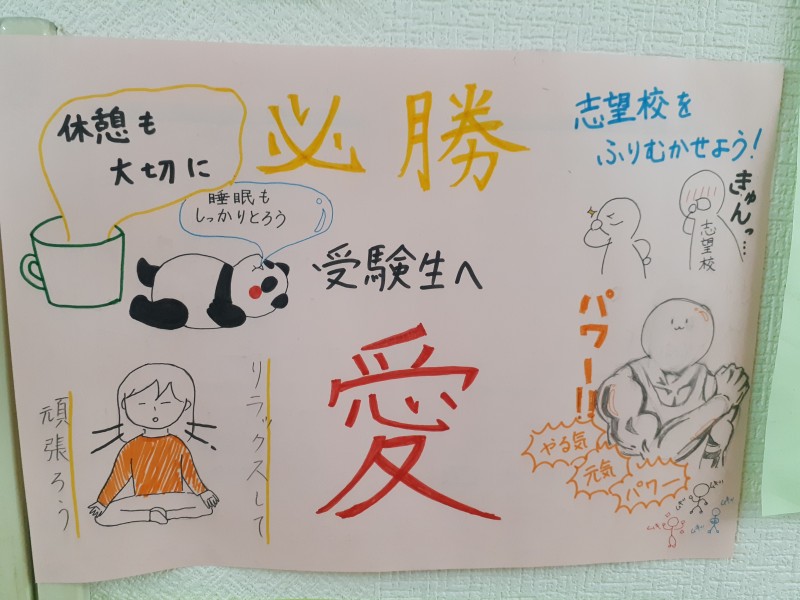 必勝
休憩も
大切に
睡眠も
しっかりとろう
受験生へ
愛
志望校を
ふりむかせよう!
きゅんっ…
志望校
パワー!!
やる気
元気
パワー
リラックスして
頑張ろう